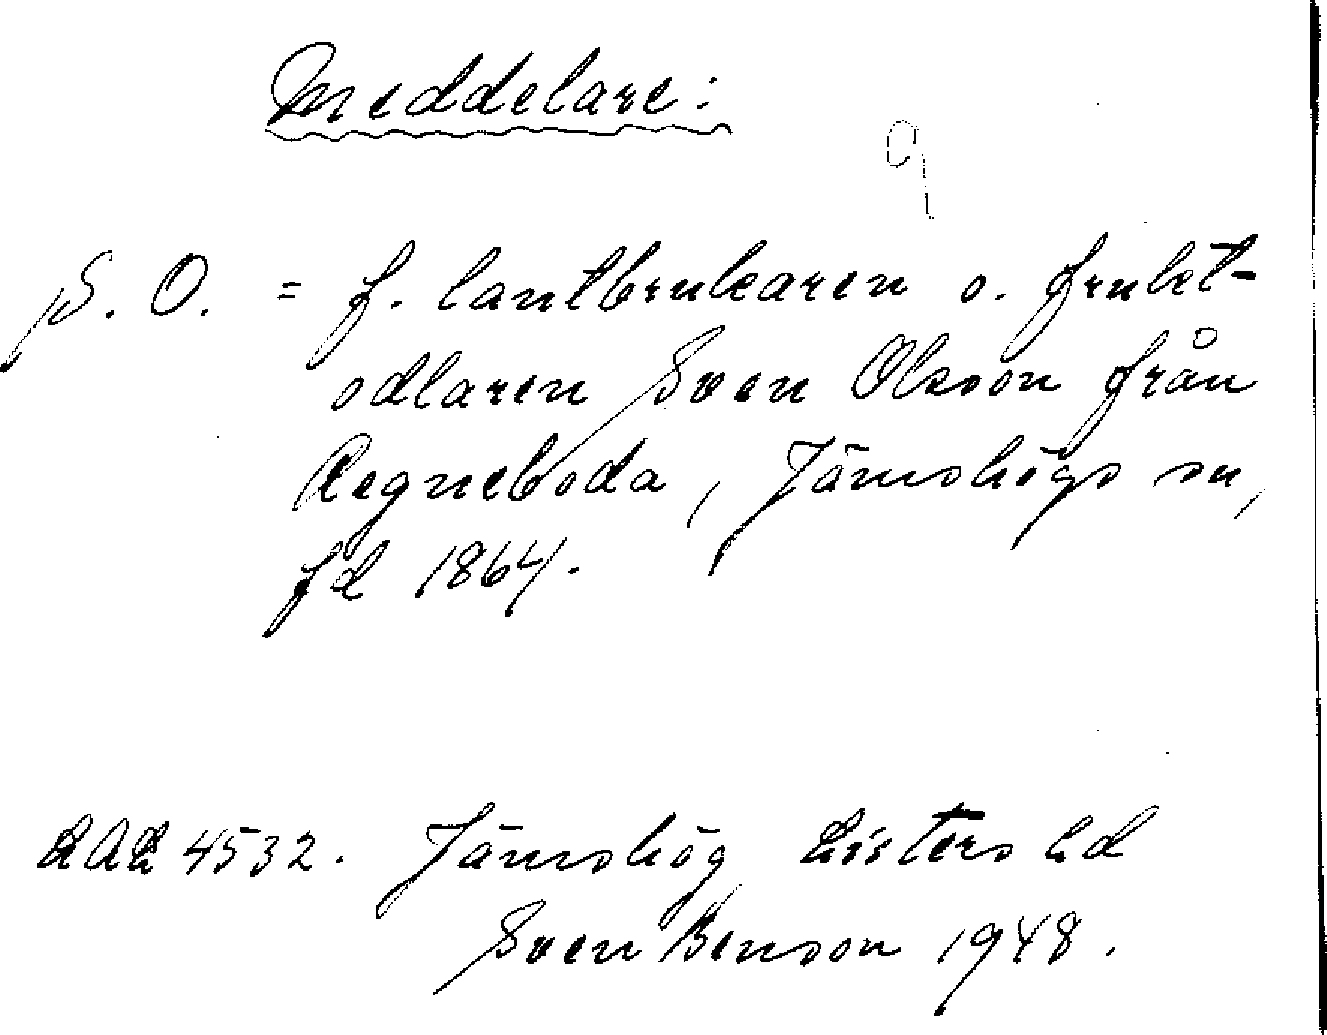 Meddelare:
9
S. O. = f. lantbrukaren o. frukt-
odlaren Sven Olsson från
Regneboda, Jämshögs sn,
fd 1864.
LAL 4532. Jämshög Listers hd
Sven Benson 1948.